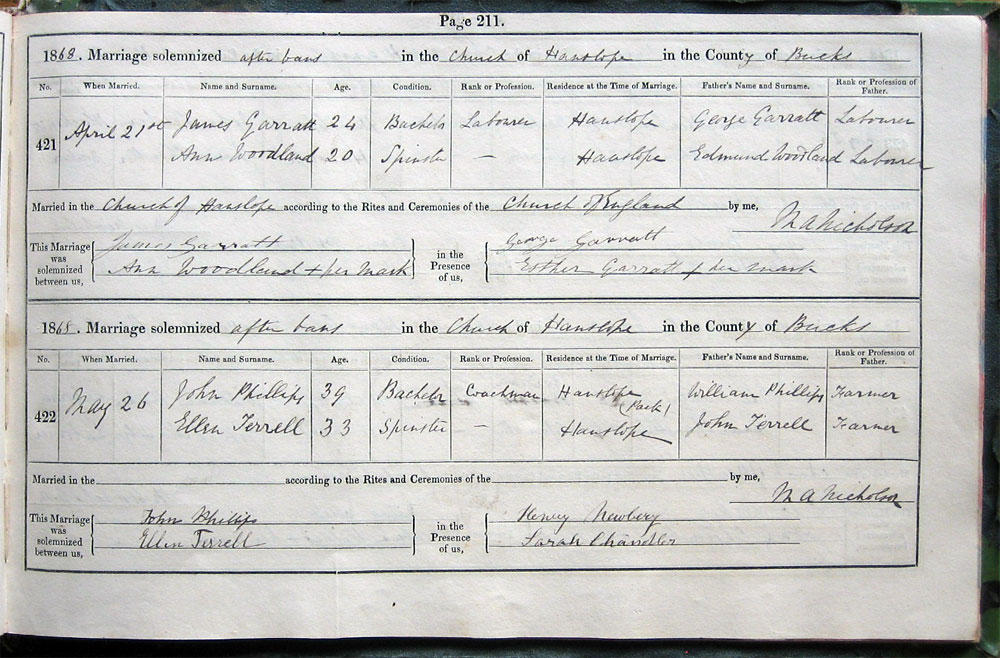 Page 211.
1868. Marriage solemnized after bans in the Church of Hanslope in the County of Bucks
No. When Married. Name and Surname. Age. Condition. Rank or Profession. Residence at the Time of Marriage. Father's Name and Surname. Rank or Profession of Father.
421 April 21st James Garratt 24 Bachelor Labourer Hanslope George Garratt Labourer
Ann Woodland 20 Spinster — Hanslope Edmund Woodland Labourer
Married in the Church of Hanslope according to the Rites and Ceremonies of the Church of England by me,
M A Nicholson
This Marriage was solemnized between us, James Garratt in the Presence of us, George Garratt
Ann Woodland + her mark Esther Garratt + her mark
1868. Marriage solemnized after bans in the Church of Hanslope in the County of Bucks
No. When Married. Name and Surname. Age. Condition. Rank or Profession. Residence at the Time of Marriage. Father's Name and Surname. Rank or Profession of Father.
422 May 26 John Phillips 39 Bachelor Coachman Hanslope (Park) William Phillips Farmer
Ellen Terrell 33 Spinster — Hanslope John Terrell Farmer
Married in the according to the Rites and Ceremonies of the by me,
M A Nicholson
This Marriage was solemnized between us, John Phillips in the Presence of us, Henry Newbery
Ellen Terrell Sarah Chandler